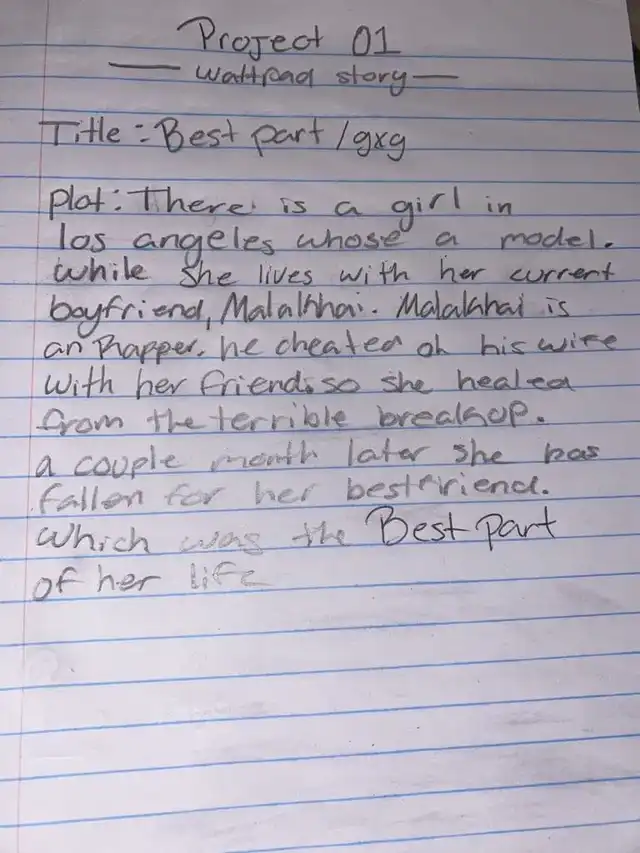 Project 01
— Wattpad story —
Title: Best part / gxg
Plot: There is a girl in
los angeles whose a model.
while she lives with her current
boyfriend, Malakhai. Malakhai is
an Rapper. he cheated on his wife
with her friend. so she healed
from the terrible breakup.
a couple month later she has
fallen for her bestfriend.
which was the Best part
of her life